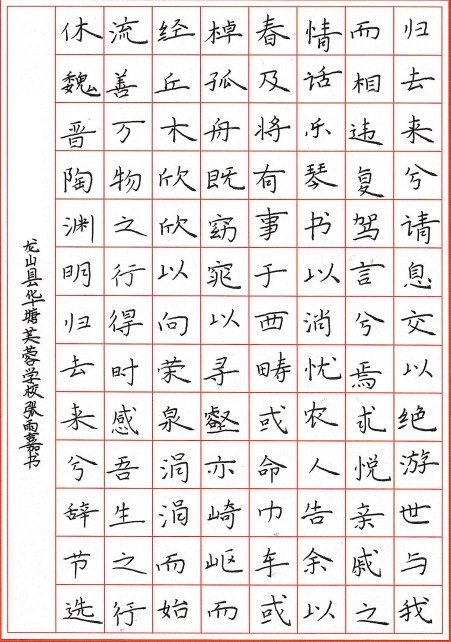 归去来兮请息交以绝游世与我
而相违复驾言兮焉求悦亲戚之
情话乐琴书以消忧农人告余以
春及将有事于西畴或命巾车或
棹孤舟既窈窕以寻壑亦崎岖而
经丘木欣欣以向荣泉涓涓而始
流善万物之行得时感吾生之行
休魏晋陶渊明归去来兮辞节选
龙山县华塘芙蓉学校张雨嘉书